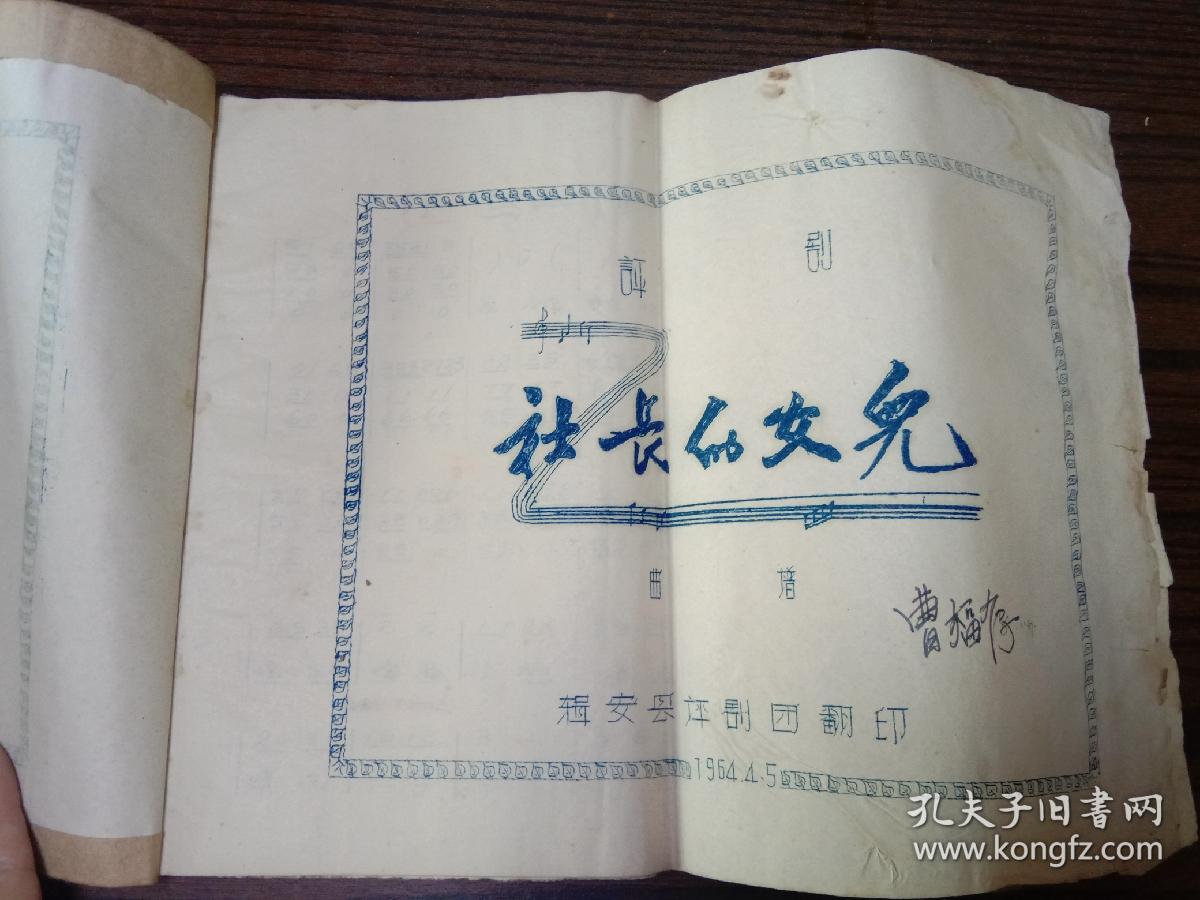 評剧
社长的女兒
曲谱
曹福存
辑安县评剧团翻印
1964.4.5
孔夫子旧書网
www.kongfz.com